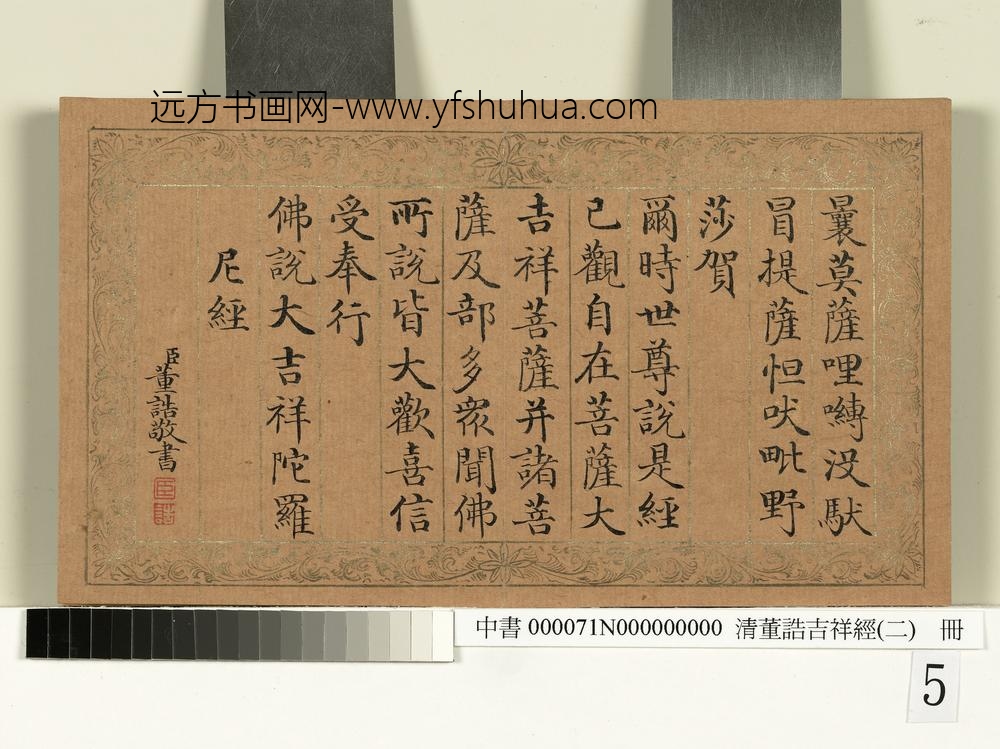 远方书画网-www.yfshuhua.com
曩莫薩哩嚩没馱
冒提薩怛吠毗野
莎賀
爾時世尊說是經
已觀自在菩薩大
吉祥菩薩并諸菩
薩及部多衆聞佛
所說皆大歡喜信
受奉行
佛說大吉祥陀羅
尼經
臣董誥敬書
臣
誥
中書 000071N000000000 清董誥吉祥經(二) 冊
5